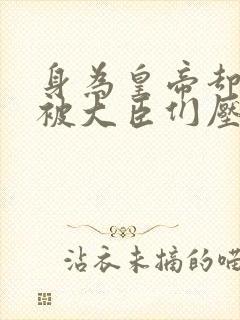 身為皇帝却
被大臣们壓
沾衣未摘的喵